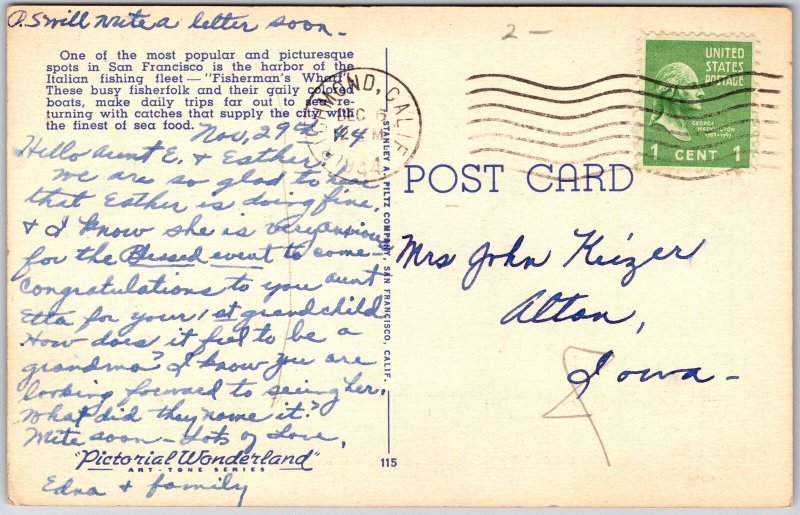 P.S will write a letter soon.
One of the most popular and picturesque
spots in San Francisco is the harbor of the
Italian fishing fleet — "Fisherman's Wharf."
These busy fisherfolk and their gaily colored
boats, make daily trips far out to sea re-
turning with catches that supply the city with
the finest of sea food.
Nov, 29th 44
Hello Aunt E. & Esther,
We are so glad to hear
that Esther is doing fine.
& I know she is very anxious
for the Blessed event to come -
Congratulations to you aunt
Etta for your 1st grandchild
How does it feel to be a
grandma? I know you are
looking forward to seeing her.
What did they name it?
Write soon - Lots of Love,
"Pictorial Wonderland"
ART-TONE SERIES
Edna & family
STANLEY A. PILTZ COMPANY, SAN FRANCISCO, CALIF.
115
2 -
RICHMOND, CALIF.
DEC 6
12 M
1944
UNITED
STATES
POSTAGE
GEORGE
WASHINGTON
1789-1797
1 CENT 1
POST CARD
Mrs John Keizer
Alton,
Iowa -